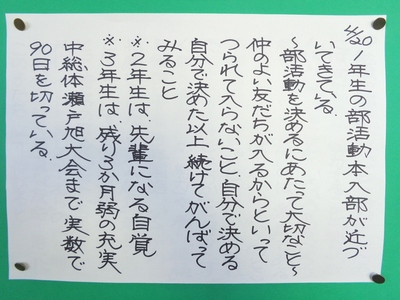 4/20 1年生の部活動本入部が近づ
いてきている。
~部活動を決めるにあたって大切なこと~
仲のよい友だちが入るからといって
つられて入らないこと、自分で決める
自分で決めた以上、続けてがんばって
みること
※2年生は、先輩になる自覚
※3年生は、残り3か月弱の充実
中総体瀬戸旭大会まで、実数で
90日を切っている。